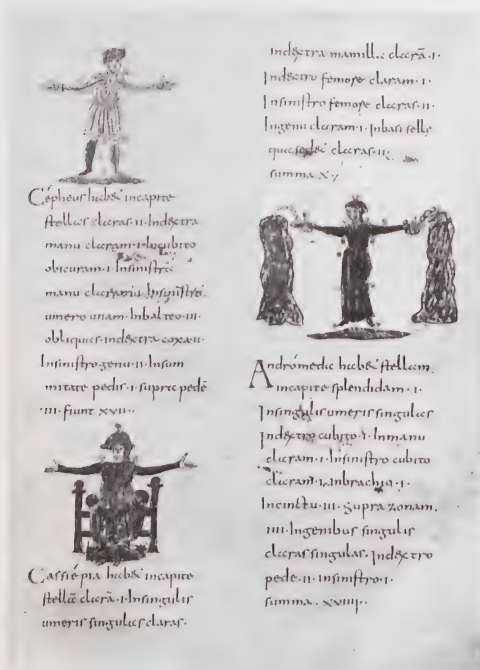 Cepheus habet in capite
stellas claras ·II· In dextra
manu claram ·I· In cubito
obscuram ·I· In sinistra
manu claram ·I· In sinistro
umero unam· In balteo ·III·
obliquas· In dextra coxa ·II·
In sinistro genu ·II· In sum
mitate pedis ·I· supra pedē
·III· fiunt XVII·
Cassiepia habet in capite
stellā clarā ·I· In singulis
umeris singulas claras·
In dextra mamilla clarā ·I·
In dextro femore claram ·I·
In sinistro femore claras ·II·
In genu claram ·I· In basi selle
qua sedet claras ·II·
summa X
Andromeda habet stellam
in capite splendidam ·I·
In singulis umeris singulas
In dextro cubito ·I· In manu
claram ·I· In sinistro cubito
claram ·I· In brachio ·I·
In cinctu ·III· supra zonam
·IIII· In genibus singulis
claras singulas· In dextro
pede ·II· In sinistro ·I·
summa· XVIIII·